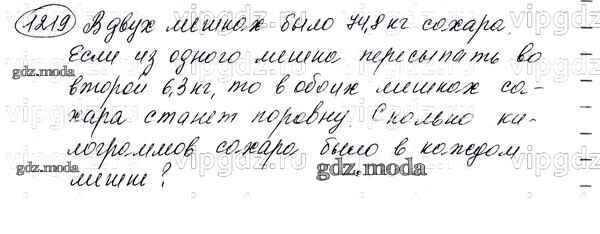 1219 В двух мешках было 74,8 кг сахара.
Если из одного мешка пересыпать во
второй 6,3 кг, то в обоих мешках са-
хара станет поровну. Сколько ки-
лограммов сахара было в каждом
мешке?
gdz.moda
gdz.moda
gdz.moda
gdz.moda
vipgdz.ru
vipgdz.ru
vipgdz.ru